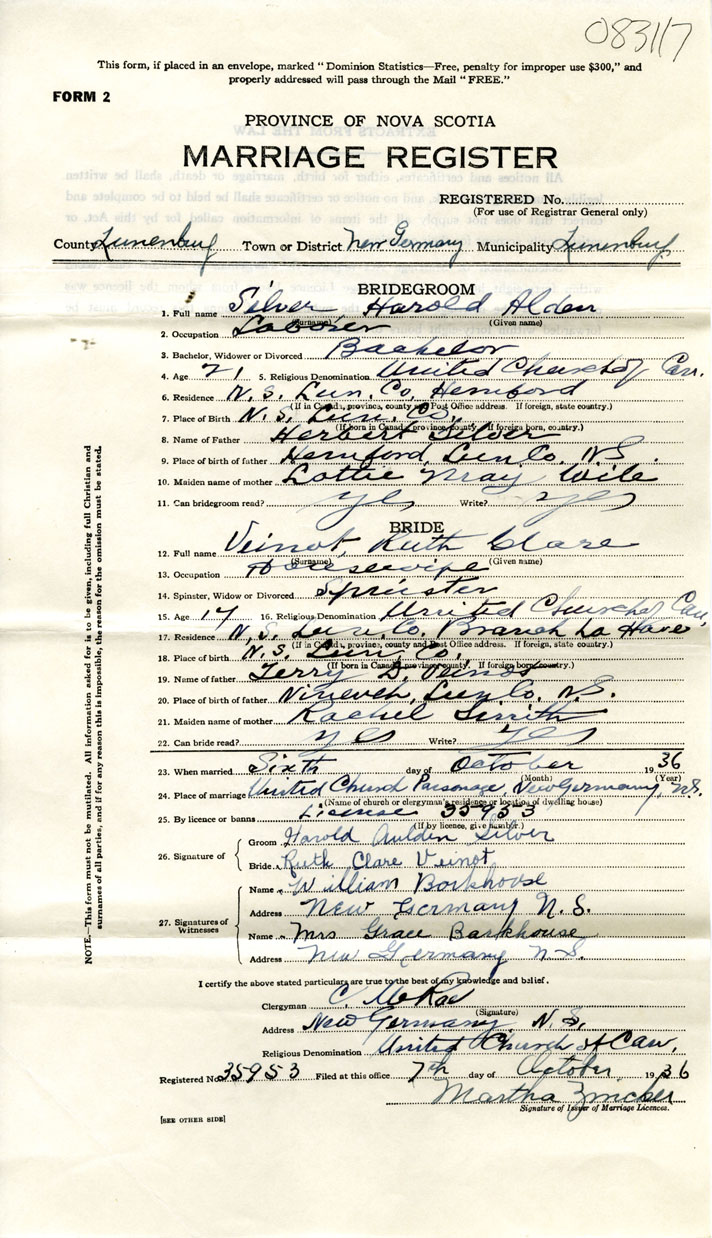 083117
This form, if placed in an envelope, marked “ Dominion Statistics—Free, penalty for improper use $300,” and
properly addressed will pass through the Mail “ FREE.”
FORM 2
PROVINCE OF NOVA SCOTIA
MARRIAGE REGISTER
REGISTERED No.
(For use of Registrar General only)
County Lunenburg Town or District New Germany Municipality Lunenburg
BRIDEGROOM
1. Full name Silver Harold Alden
(Surname) (Given name)
2. Occupation Laborer
3. Bachelor, Widower or Divorced Bachelor
4. Age 21 5. Religious Denomination United Church of Can.
6. Residence N. S. Lun. Co, Hemford
(If in Canada, province, county and Post Office address. If foreign, state country.)
7. Place of Birth N. S. Lun. Co.
(If born in Canada, province, county. If foreign born, country.)
8. Name of Father Herbert Silver
9. Place of birth of father Hemford, Lun Co. N S.
10. Maiden name of mother Lottie May Wile
11. Can bridegroom read? yes Write? yes
BRIDE
12. Full name Veinot, Ruth Clare
(Surname) (Given name)
13. Occupation Housewife
14. Spinster, Widow or Divorced Spinster
15. Age 17 16. Religious Denomination United Church of Can,
17. Residence N. S. Lun. Co, Branch La Have
(If in Canada, province, county and Post Office address. If foreign, state country.)
18. Place of birth N. S. Lun. Co,
(If born in Canada, province, county. If foreign born, country.)
19. Name of father D, Veinot
20. Place of birth of father Nineveh, Lun Co. N. S.
21. Maiden name of mother Rachel Smith
22. Can bride read? yes Write? yes
23. When married Sixth day of October 1936
(Month) (Year)
24. Place of marriage United Church Parsonage, New Germany, N.S.
(Name of church or clergyman's residence or location of dwelling house)
25. By licence or banns License 35953
(If by licence, give number.)
26. Signature of
Groom Harold Aulden Silver
Bride Ruth Clare Veinot
27. Signatures of Witnesses
Name William Barkhouse
Address New Germany N. S.
Name Mrs Grace Barkhouse
Address New Germany N S.
I certify the above stated particulars are true to the best of my knowledge and belief.
Clergyman C. McRae
(Signature)
Address New Germany, N. S,
Religious Denomination United Church of Can,
Registered No. 35953 Filed at this office 7th day of October 1936
Martha Zwicker
Signature of Issuer of Marriage Licences.
[SEE OTHER SIDE]
NOTE.—This form must not be mutilated. All information asked for is to be given, including full Christian and
surnames of all parties, and if for any reason this is impossible, the reason for the omission must be stated.